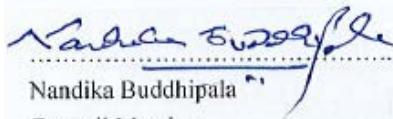 Nandika Buddhipala
Nandika Buddhipala